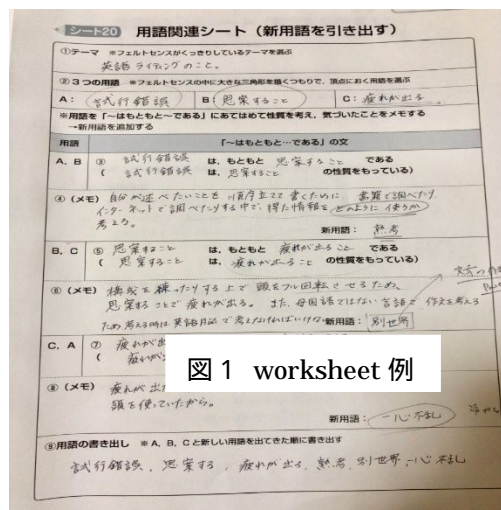 シート20 用語関連シート（新用語を引き出す）
①テーマ ※フェルトセンスがくっきりしているテーマを選ぶ
英語ライティングのこと。
②3つの用語 ※フェルトセンスの中に大きな三角形を描くつもりで、頂点におく用語を選ぶ
A： 試行錯誤 B： 思案すること C： 疲れが出る
※用語を「～はもともと～である」にあてはめて性質を考え、気づいたことをメモする
→新用語を追加する
用語 「～はもともと…である」の文
A, B ③ 試行錯誤 は、もともと 思案すること である
（ 試行錯誤 は、思案すること の性質をもっている）
④（メモ） 自分が述べたいことを順序立てて書くために 書籍で調べたり
インターネットで調べたりする中で、得た情報をどのように使うか
考える。
新用語： 熟考
B, C ⑤ 思案すること は、もともと 疲れが出ること である
（ 思案すること は、疲れが出ること の性質をもっている）
⑥（メモ） 構成を練ったりする上で頭をフル回転させるため、
思案することで疲れが出る。また、母国語ではない言語で作文を考える
ため考える時は英語用語で考えなければいけない 新用語： 別世界
C, A ⑦ 疲れが出
（ 疲れが
図1 worksheet 例
⑧（メモ） 疲れが出
頭を使っていたから。
新用語： 一心不乱
⑨用語の書き出し ※A, B, Cと新しい用語を出てきた順に書き出す
試行錯誤、思案する、疲れが出る、熟考、別世界、一心不乱